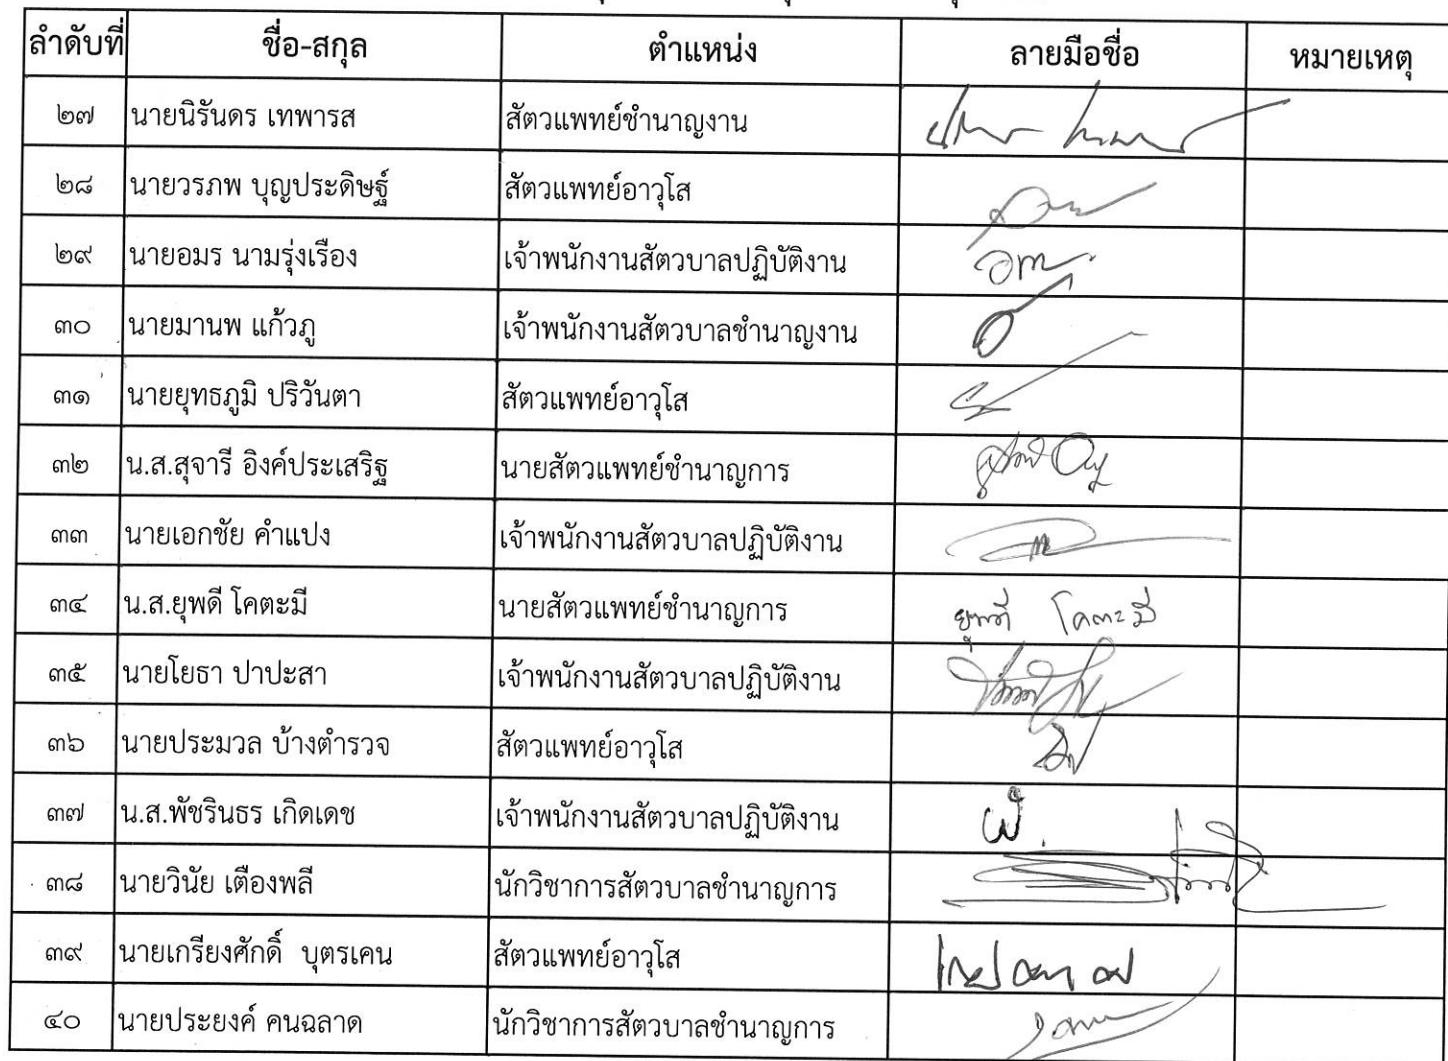 ลำดับที่ ชื่อ-สกุล ตำแหน่ง ลายมือชื่อ หมายเหตุ
๒๗ นายนิรันดร เทพารส สัตวแพทย์ชำนาญงาน
๒๘ นายวรภพ บุญประดิษฐ์ สัตวแพทย์อาวุโส
๒๙ นายอมร นามรุ่งเรือง เจ้าพนักงานสัตวบาลปฏิบัติงาน
๓๐ นายมานพ แก้วภู เจ้าพนักงานสัตวบาลชำนาญงาน
๓๑ นายยุทธภูมิ ปริวันตา สัตวแพทย์อาวุโส
๓๒ น.ส.สุจารี อิงค์ประเสริฐ นายสัตวแพทย์ชำนาญการ
๓๓ นายเอกชัย คำแปง เจ้าพนักงานสัตวบาลปฏิบัติงาน
๓๔ น.ส.ยุพดี โคตะมี นายสัตวแพทย์ชำนาญการ ยุพดี โคตะมี
๓๕ นายโยธา ปาปะสา เจ้าพนักงานสัตวบาลปฏิบัติงาน
๓๖ นายประมวล บ้างตำรวจ สัตวแพทย์อาวุโส
๓๗ น.ส.พัชรินธร เกิดเดช เจ้าพนักงานสัตวบาลปฏิบัติงาน
๓๘ นายวินัย เตืองพลี นักวิชาการสัตวบาลชำนาญการ
๓๙ นายเกรียงศักดิ์ บุตรเคน สัตวแพทย์อาวุโส
๔๐ นายประยงค์ คนฉลาด นักวิชาการสัตวบาลชำนาญการ